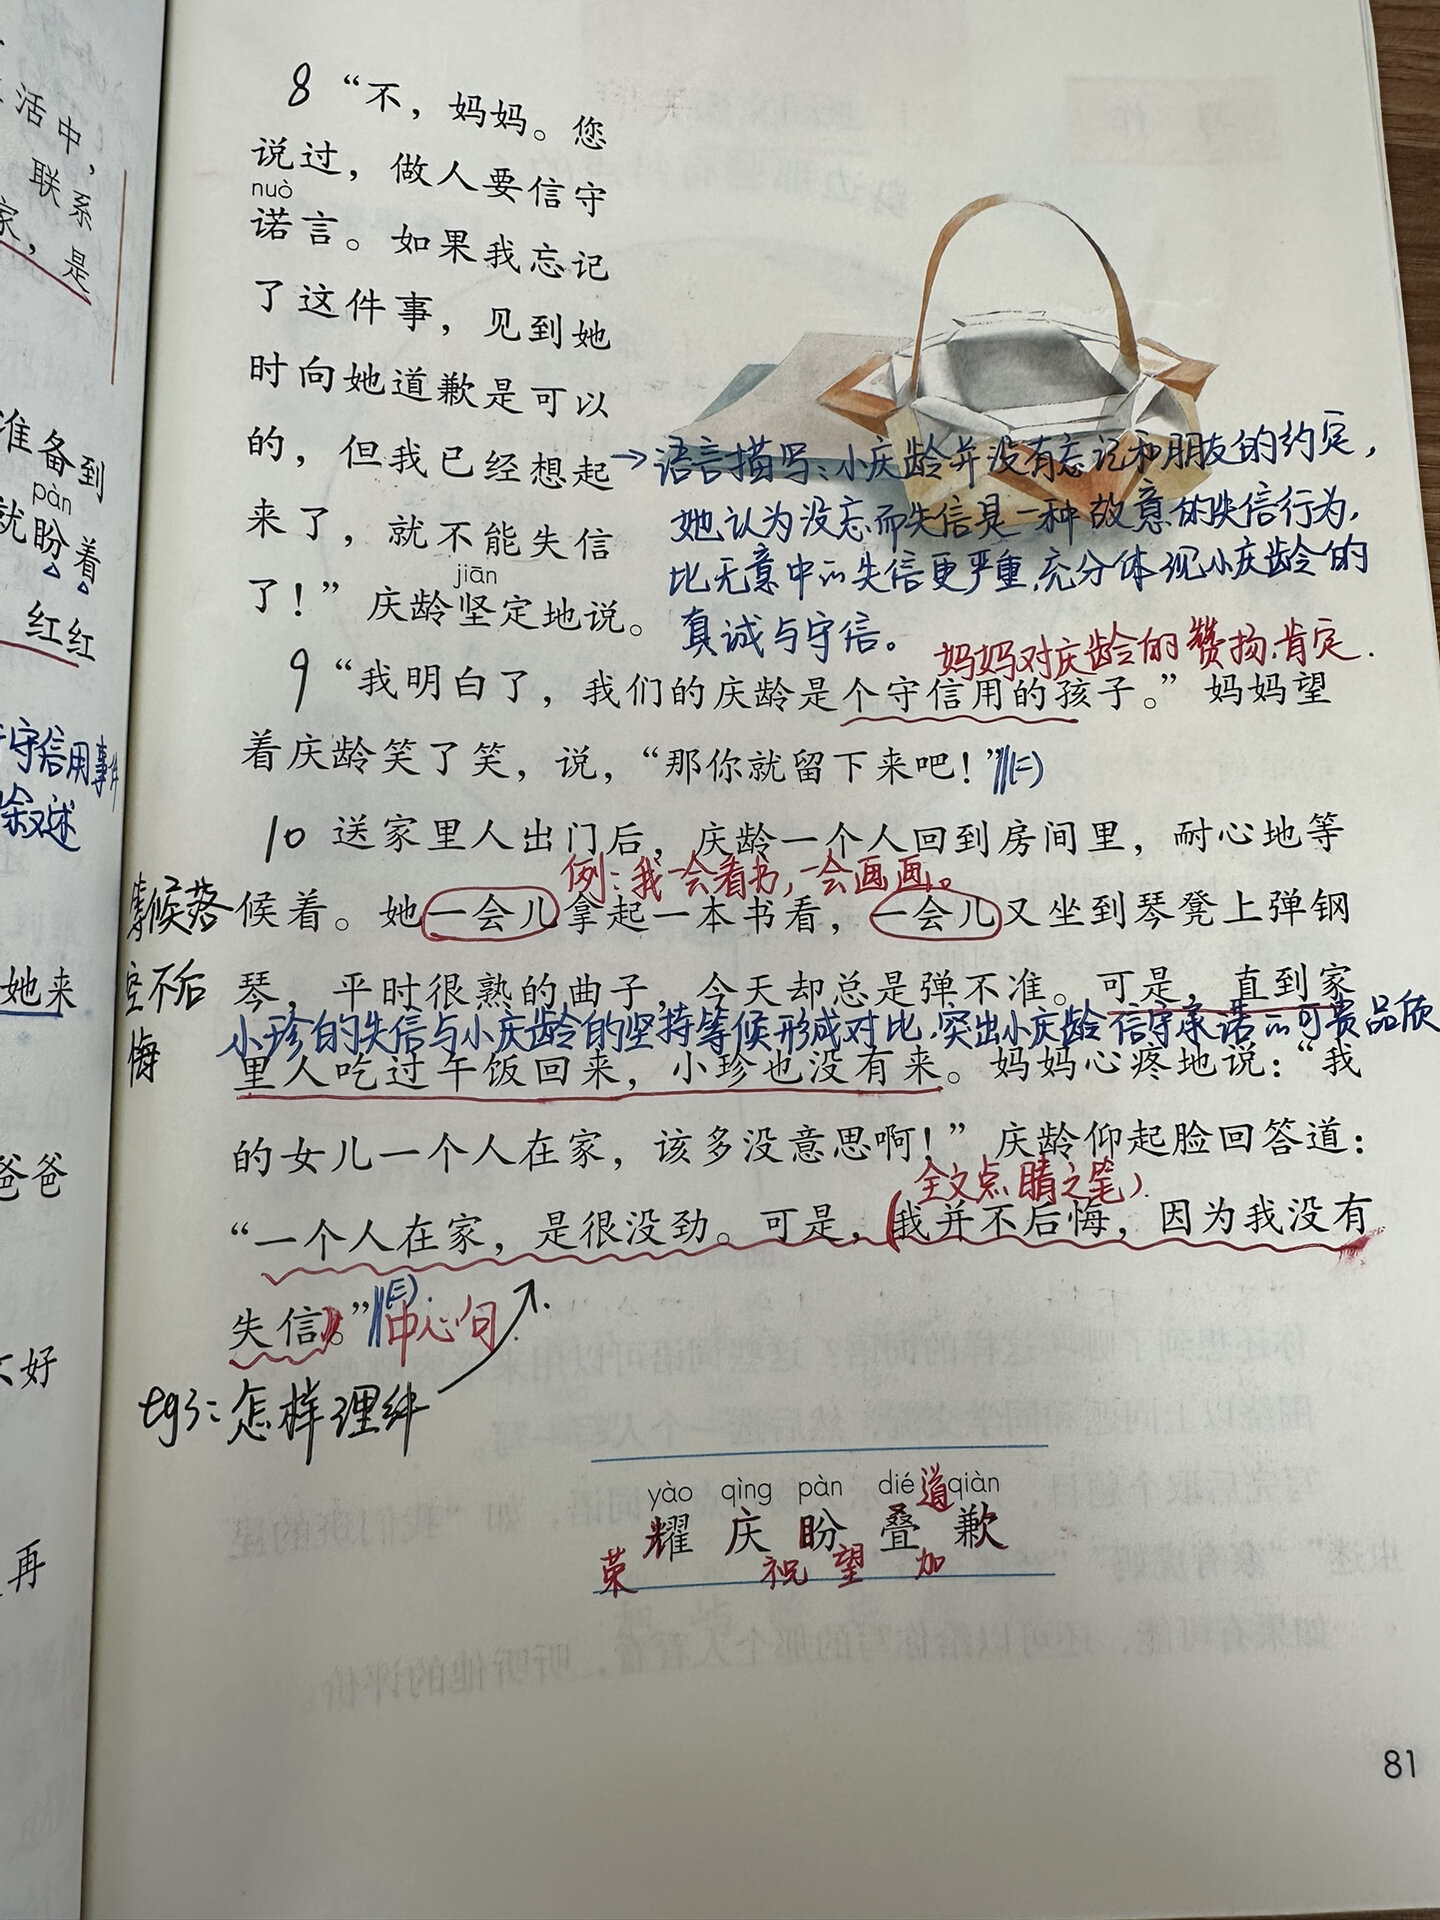 活中，
联系
家，是
准备到
pàn
就盼着
红红
守信用事件
叙述
她来
爸爸
好
再
8 “不，妈妈。您
说过，做人要信守
nuò
诺言。如果我忘记
了这件事，见到她
时向她道歉是可以
的，但我已经想起
→语言描写：小庆龄并没有忘记和朋友的约定，
来了，就不能失信
她认为没忘而失信是一种故意的失信行为，
jiān
比无意中的失信更严重，充分体现小庆龄的
了！”庆龄坚定地说。
真诚与守信。
妈妈对庆龄的赞扬、肯定.
9 “我明白了，我们的庆龄是个守信用的孩子。”妈妈望
着庆龄笑了笑，说，“那你就留下来吧！”‖(二)
10 送家里人出门后，庆龄一个人回到房间里，耐心地等
例：我一会看书，一会画画。
候着。她一会儿拿起一本书看，一会儿又坐到琴凳上弹钢
候落
空不后
悔
琴，平时很熟的曲子，今天却总是弹不准。可是，直到家
小珍的失信与小庆龄的坚持等候形成对比，突出小庆龄信守承诺的可贵品质
里人吃过午饭回来，小珍也没有来。妈妈心疼地说：“我
的女儿一个人在家，该多没意思啊！”庆龄仰起脸回答道：
全文点睛之笔）
“一个人在家，是很没劲。可是，（我并不后悔，因为我没有
失信。”‖(三)
中心句
tg3：怎样理解
yào qìng pàn dié 道 qiàn
耀 庆 盼 叠 歉
荣 祝 望 加
81